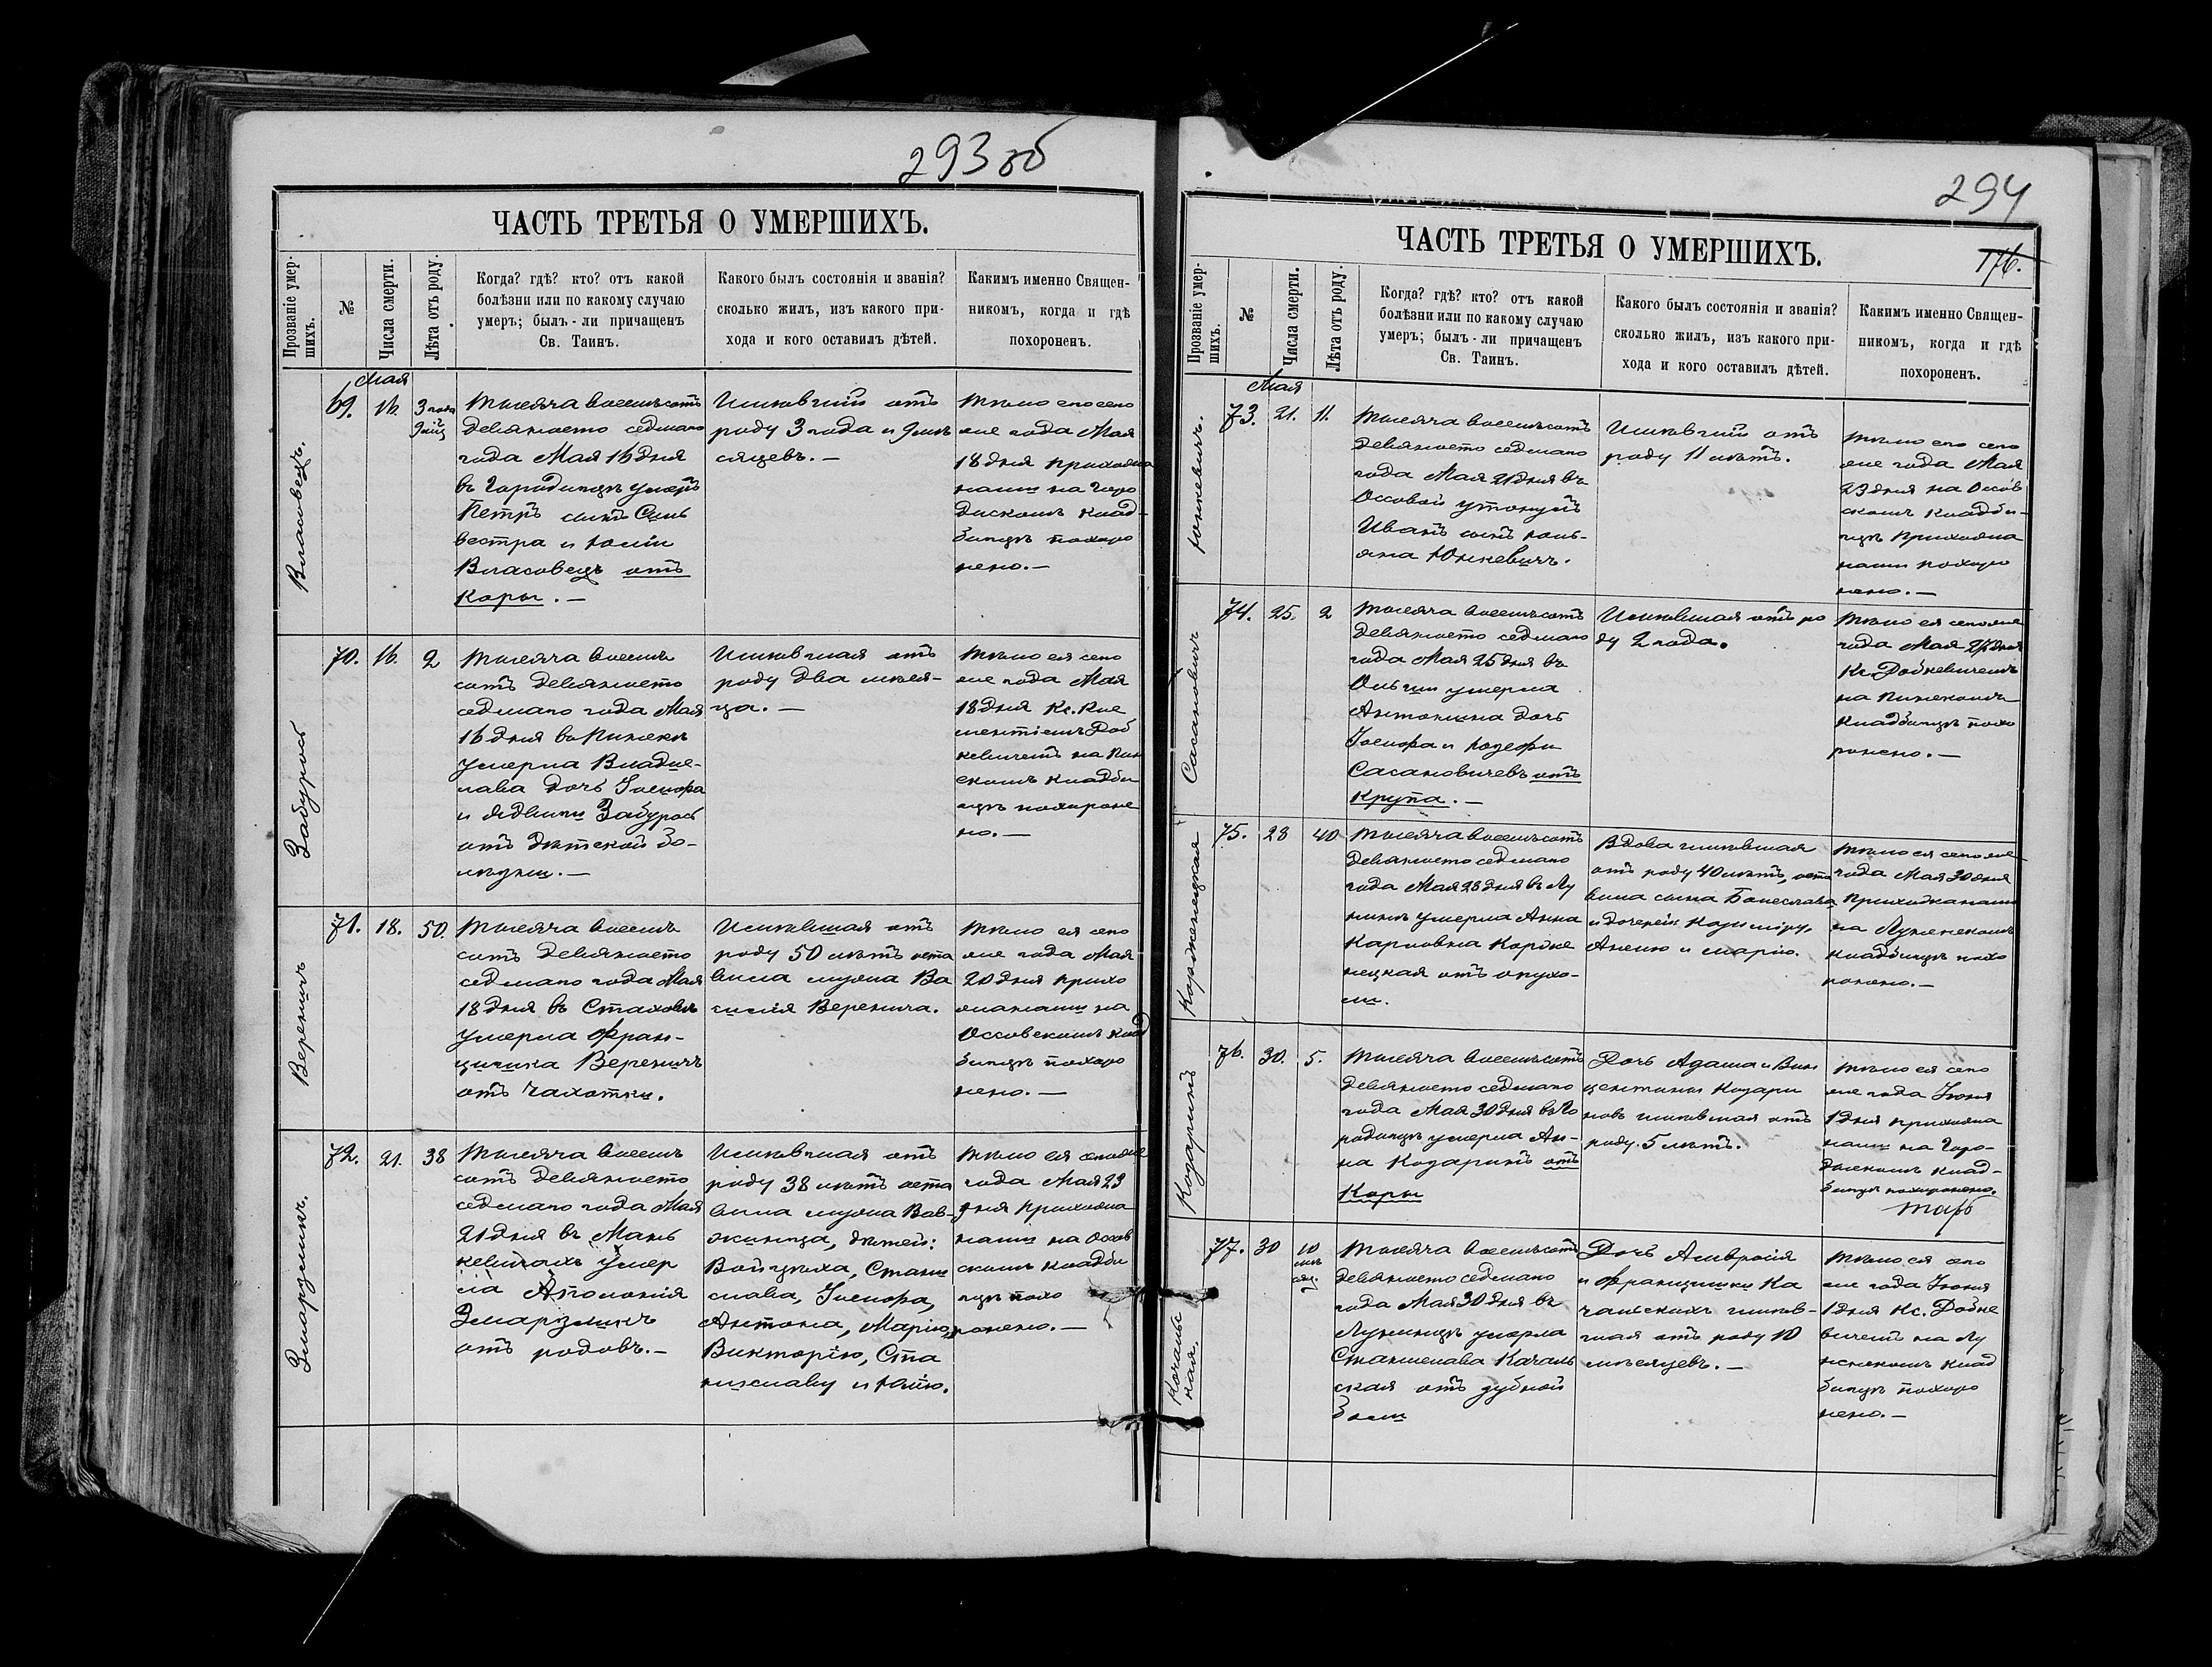 293 об
ЧАСТЬ ТРЕТЬЯ О УМЕРШИХЪ.
Прозваніе умер-
шихъ.
№
Числа смерти.
Лѣта отъ роду.
Когда? гдѣ? кто? отъ какой
болѣзни или по какому случаю
умеръ; былъ-ли причащенъ
Св. Таинъ.
Какого былъ состоянія и званія?
сколько жилъ, изъ какого при-
хода и кого оставилъ дѣтей.
Какимъ именно Священ-
никомъ, когда и гдѣ
похороненъ.
Мая
Власовецъ.
69.
16.
3 года
9 мѣс
Тысяча восемьсотъ
девяносто седмаго
года Мая 16 дня
въ Городищѣ умеръ
Петръ сынъ Силь
вестра и Юліи
Власовецъ отъ
Коры. —
Имѣвшій отъ
роду 3 года и 9 мѣ
сяцевъ. —
Тѣло его сего
же года Мая
18 дня прихожа
нами на Горо
дискомъ клад-
бищѣ похоро
нено. —
Забурось
70.
16.
2
Тысяча восемь
сотъ девяносто
седмаго года Мая
16 дня въ Пинскѣ
умерла Владис-
лава дочь Іосифа
и Ядвиги Забурось
отъ дѣтской бо-
лѣзни. —
Имѣвшая отъ
роду два мѣся-
ца. —
Тѣло ея сего
же года Мая
18 дня Кс. Кле
ментіемъ Дой
кевичемъ на Пин
скомъ кладби
щѣ похороне
но. —
Вереничъ
71.
18.
50.
Тысяча восемь
сотъ девяносто
седмаго года Мая
18 дня въ Стаховѣ
умерла Фран-
цишка Вереничъ
отъ чахотки.
Имѣвшая отъ
роду 50 лѣтъ оста
вила мужа Ва
силія Веренича.
Тѣло ея сего
же года Мая
20 дня прихо
жанами на
Оссовскомъ клад
бищѣ похоро
нено. —
Змарзликъ.
72.
21.
38
Тысяча восемь
сотъ девяносто
седмаго года Мая
21 дня въ Мань
кевичахъ умер
ла Аполонія
Змарзликъ
отъ родовъ. —
Имѣвшая отъ
роду 38 лѣтъ оста
вила мужа Вав-
жинца, дѣтей:
Войцѣха, Стани
слава, Іосифа,
Антона, Марію,
Викторію, Ста
ниславу и Юлію.
Тѣло ея сегоже
года Мая 23
дня прихожа
нами на Оссов
скомъ кладби
щѣ похо
ронено. —
294
176.
ЧАСТЬ ТРЕТЬЯ О УМЕРШИХЪ.
Прозваніе умер-
шихъ.
№
Числа смерти.
Лѣта отъ роду.
Когда? гдѣ? кто? отъ какой
болѣзни или по какому случаю
умеръ; былъ-ли причащенъ
Св. Таинъ.
Какого былъ состоянія и званія?
сколько жилъ, изъ какого при-
хода и кого оставилъ дѣтей.
Какимъ именно Священ-
никомъ, когда и гдѣ
похороненъ.
Мая
Юнкевичъ.
73.
21.
11.
Тысяча восемьсотъ
девяносто седмаго
года Мая 21 дня въ
Оссовой утонулъ
Иванъ сынъ Юль-
яна Юнкевичъ.
Имѣвшій отъ
роду 11 лѣтъ.
Тѣло его сего
же года Мая
23 дня на Оссов
скомъ кладби-
щѣ прихожа
нами похоро
нено. —
Сасановичъ
74.
25.
2
Тысяча восемьсотъ
девяносто седмаго
года Мая 25 дня въ
умерла
Антонина дочь
Іосифа и Юзефы
Сасановичевъ отъ
крупа. —
Имѣвшая отъ ро
ду 2 года.
Тѣло ея сегоже
года Мая 27 дня
Кс. Дойкевичемъ
на Пинскомъ
кладбищѣ похо
ронено. —
Корженецкая
75.
28
40
Тысяча восемьсотъ
девяносто седмаго
года Мая 28 дня въ Лу
нинѣ умерла Анна
Карловна Корже
нецкая отъ опухо-
ли.
Вдова имѣвшая
отъ роду 40 лѣтъ, оста
вила сына Болеслава
и дочерей: Казиміру,
Анелю и Марію.
Тѣло ея сегоже
года Мая 30 дня
прихожанами
на Лунинскомъ
кладбищѣ похо
ронено. —
Козаринъ
76.
30.
5.
Тысяча восемьсотъ
девяносто седмаго
года Мая 30 дня въ Го
родищѣ умерла Ан-
на Козаринъ отъ
Коры
Дочь Адама и Вин
центины Козари
новъ имѣвшая отъ
роду 5 лѣтъ.
Тѣло ея сего
же года Іюня
1 дня прихожа
нами на Горо-
дискомъ клад-
бищѣ похоронено.
Качаль
ская.
77.
30
10
мѣ
сяц.
Тысяча восемьсотъ
девяносто седмаго
года Мая 30 дня въ
Лунинцѣ умерла
Станислава Качаль
ская отъ зубной
боли
Дочь Амвросія
и Францишки Ка
чальскихъ имѣв-
шая отъ роду 10
мѣсяцевъ. —
Тѣло ея сего
же года Іюня
1 дня Кс. Дойке
вичемъ на Лу
нинскомъ клад
бищѣ похоро
нено. —